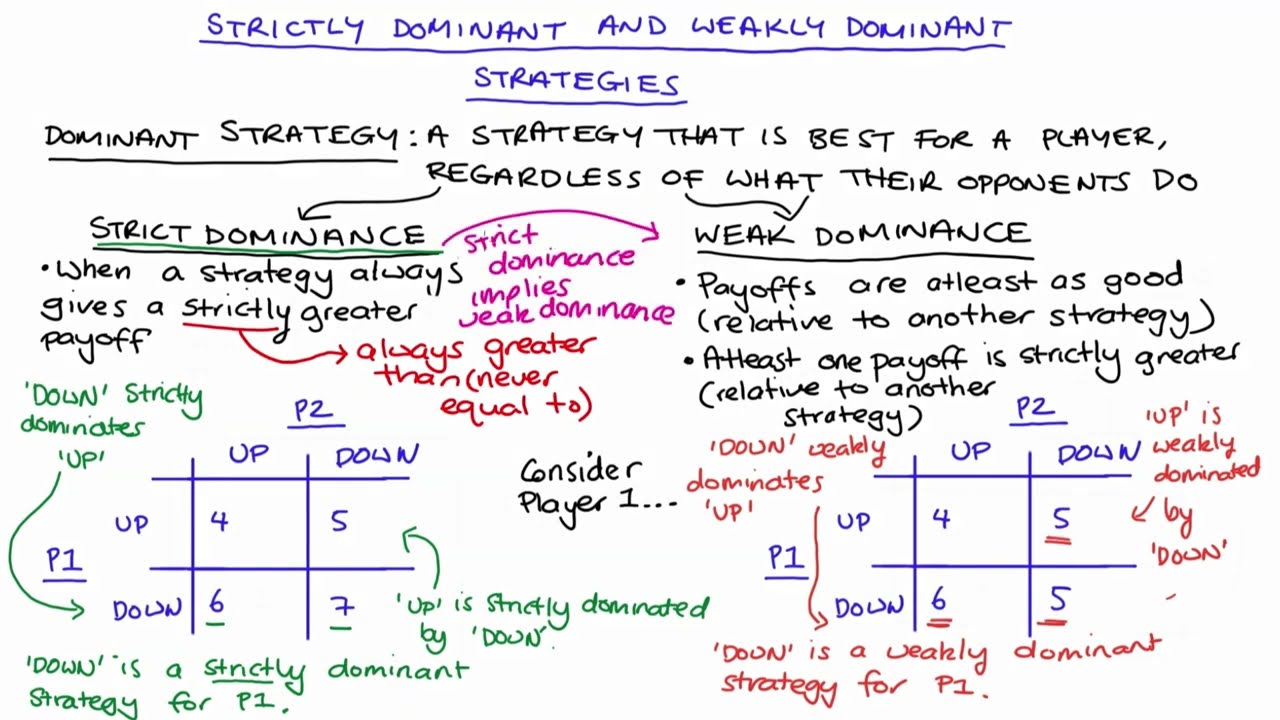 STRICTLY DOMINANT AND WEAKLY DOMINANT
STRATEGIES
DOMINANT STRATEGY: A STRATEGY THAT IS BEST FOR A PLAYER,
REGARDLESS OF WHAT THEIR OPPONENTS DO
STRICT DOMINANCE
• When a strategy always
gives a strictly greater
payoff
always greater
than (never
equal to)
Strict
dominance
implies
weak dominance
WEAK DOMINANCE
• Payoffs are atleast as good
(relative to another strategy)
• Atleast one payoff is strictly greater
(relative to another
strategy)
'DOWN' Strictly
dominates
'UP'
P2
UP DOWN
UP 4 5
P1
DOWN 6 7
'UP' is strictly dominated
by 'DOWN'.
'DOWN' is a strictly dominant
strategy for P1.
Consider
Player 1...
'DOWN' weakly
dominates
'UP'
P2
UP DOWN
UP 4 5
P1
DOWN 6 5
'UP' is
weakly
dominated
by
'DOWN'
'DOWN' is a weakly dominant
strategy for P1.